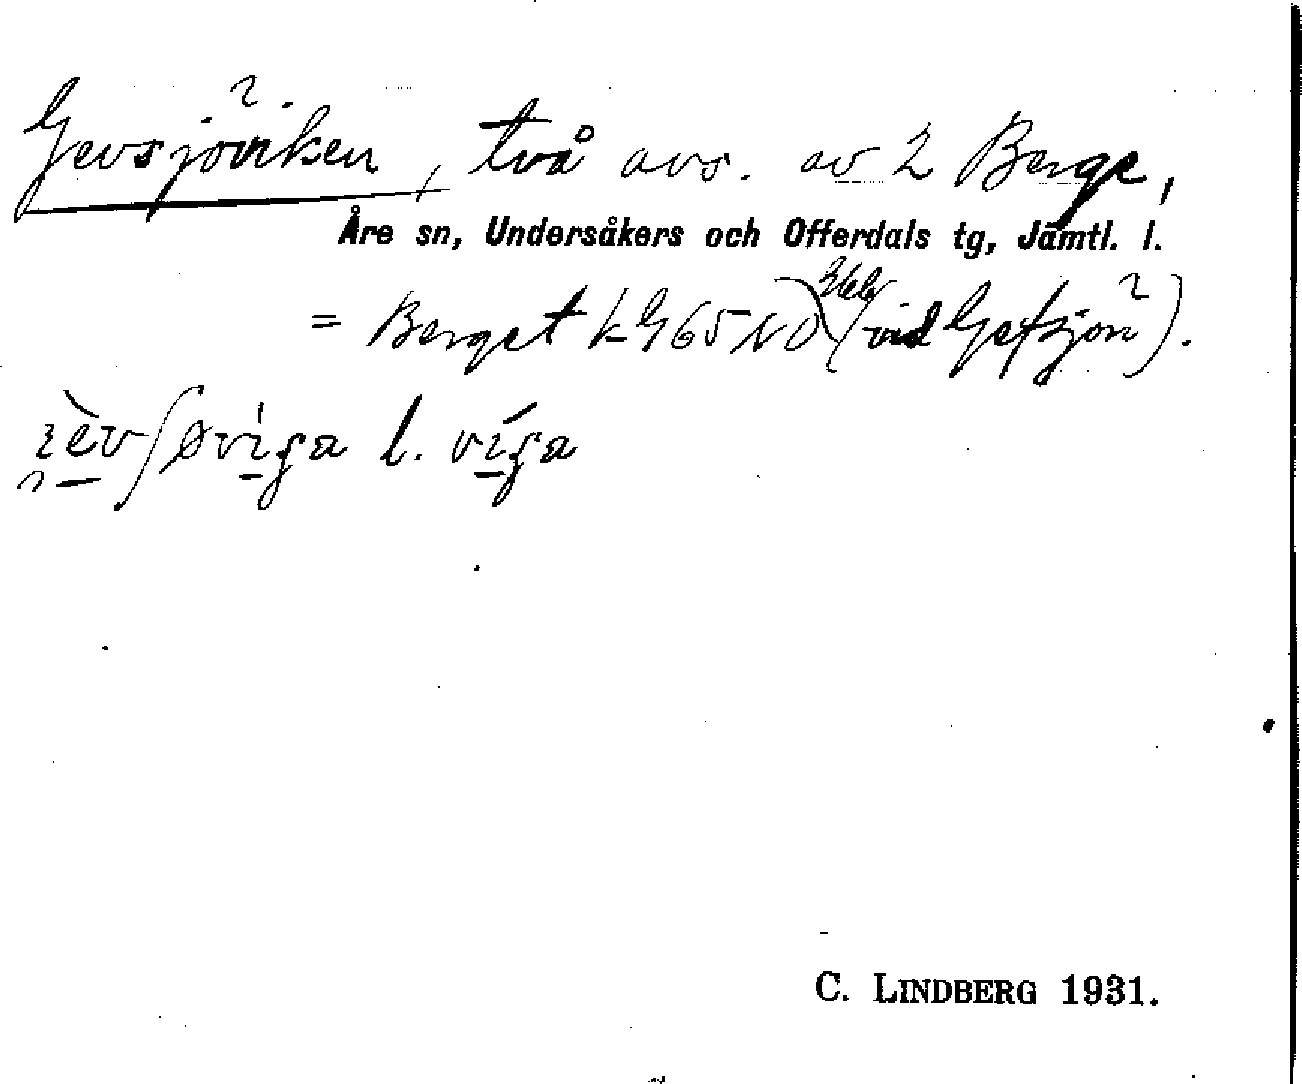 Gevsjöviken, två avs. av 2 Berge,
Åre sn, Undersåkers och Offerdals tg, Jämtl. l.
= Berget k G65 NO 366 (vid Gefsjön).
l. viga
C. LINDBERG 1931.